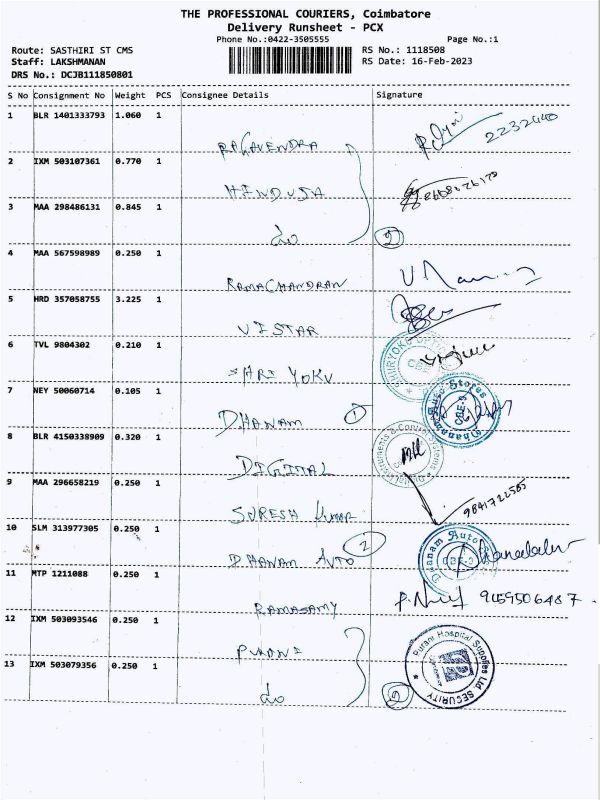 THE PROFESSIONAL COURIERS, Coimbatore
Delivery Runsheet - PCX
Phone No.:0422-3505555
Page No.:1
Route: SASTHIRI ST CMS
RS No.: 1118508
Staff: LAKSHMANAN
RS Date: 16-Feb-2023
DRS No.: DCJB111850801
S No Consignment No Weight PCS Consignee Details Signature
1 BLR 1401333793 1.060 1
RAGAVENDRA 2232440
2 IXM 503107361 0.770 1
HINDUSA
3 MAA 298486131 0.845 1
do 2
4 MAA 567598989 0.250 1
RAMACHANDRAN
5 HRD 357058755 3.225 1
VISTAR
6 TVL 9804302 0.210 1
SHRI YOKU
7 NEY 50060714 0.105 1
DHANAM 1 Dhanam Auto Stores CBE-9
8 BLR 4150338909 0.320 1
DIGITAL Digital Instruments & Control Systems
9 MAA 296658219 0.250 1
SURESH KUMAR 9841722585
10 SLM 313977305 0.250 1
DHANAM AUTO 2 Dhanam Auto
11 MTP 1211088 0.250 1
RAMASAMY 9459506487
12 IXM 503093546 0.250 1
PURANI Purani Hospital Supplies Ltd. SECURITY
13 IXM 503079356 0.250 1
do 2